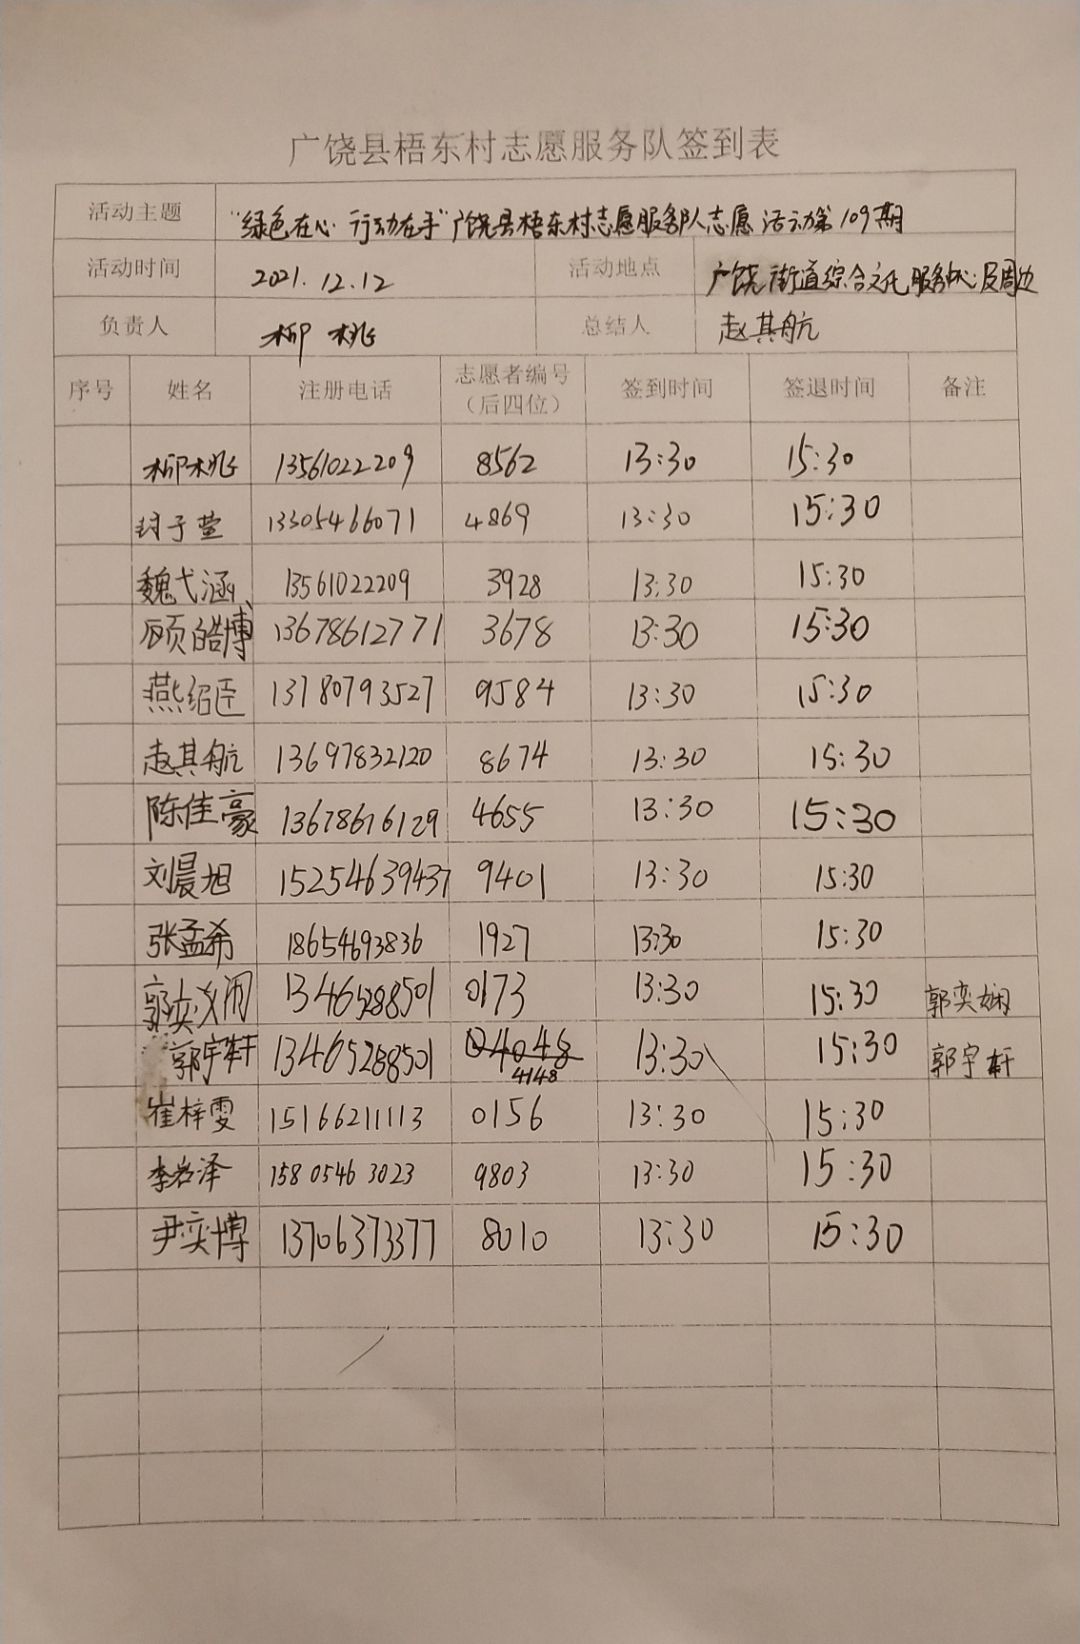 广饶县梧东村志愿服务队签到表
活动主题 “绿色在心 行动在手”广饶县梧东村志愿服务队志愿活动第109期
活动时间 2021.12.12 活动地点 广饶街道综合文化服务中心及周边
负责人 柳桃 总结人 赵其航
序号 姓名 注册电话 志愿者编号（后四位） 签到时间 签退时间 备注
柳桃 13561022209 8562 13:30 15:30
封于萱 13305466071 4869 13:30 15:30
魏弋涵 13561022209 3928 13:30 15:30
顾皓博 13678612771 3678 13:30 15:30
燕绍臣 13780793527 9584 13:30 15:30
赵其航 13697832120 8674 13:30 15:30
陈佳豪 13678616129 4655 13:30 15:30
刘晨旭 15254639437 9401 13:30 15:30
张孟希 18654693836 1927 13:30 15:30
郭奕娴 13465288501 0173 13:30 15:30 郭奕娴
郭宇轩 13465288501 4148 13:30 15:30 郭宇轩
崔梓雯 15166211113 0156 13:30 15:30
李名泽 15805463023 9803 13:30 15:30
尹奕博 13706373377 8010 13:30 15:30